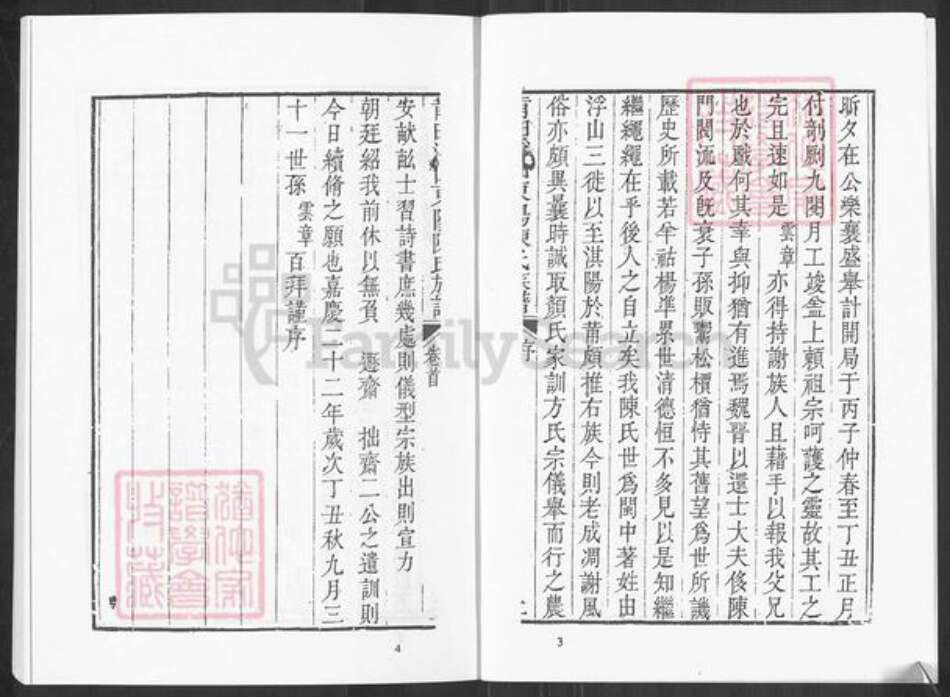 斯夕在公樂襄盛舉計開局于丙子仲春至丁丑正月
付剞劂九閱月工竣盆上賴祖宗呵護之靈故其工之
完且速如是 雲章 亦得持謝族人且藉手以報我父兄
也於戲何其幸與抑猶有進焉魏晉以還士大夫侈陳
門閥流及旣衰子孫販鬻松檟猶恃其舊望爲世所譏
歷史所載若羊祜楊準累世清德恒不多見以是知繼
繼繩繩在乎後人之自立矣我陳氏世爲閩中著姓由
浮山三徙以至淇陽於莆頗推右族今則老成凋謝風
俗亦頗異曩時誠取顏氏家訓方氏宗儀舉而行之農
序
卷首
安献畝士習詩書庶幾處則儀型宗族出則宣力
朝廷紹我前休以無負 遯齋 拙齋二公之遺訓則
今日續脩之願也嘉慶二十二年歲次丁丑秋九月三
十一世孫 雲章 百拜謹序
譜學會
收藏
FamilySearch
4
3